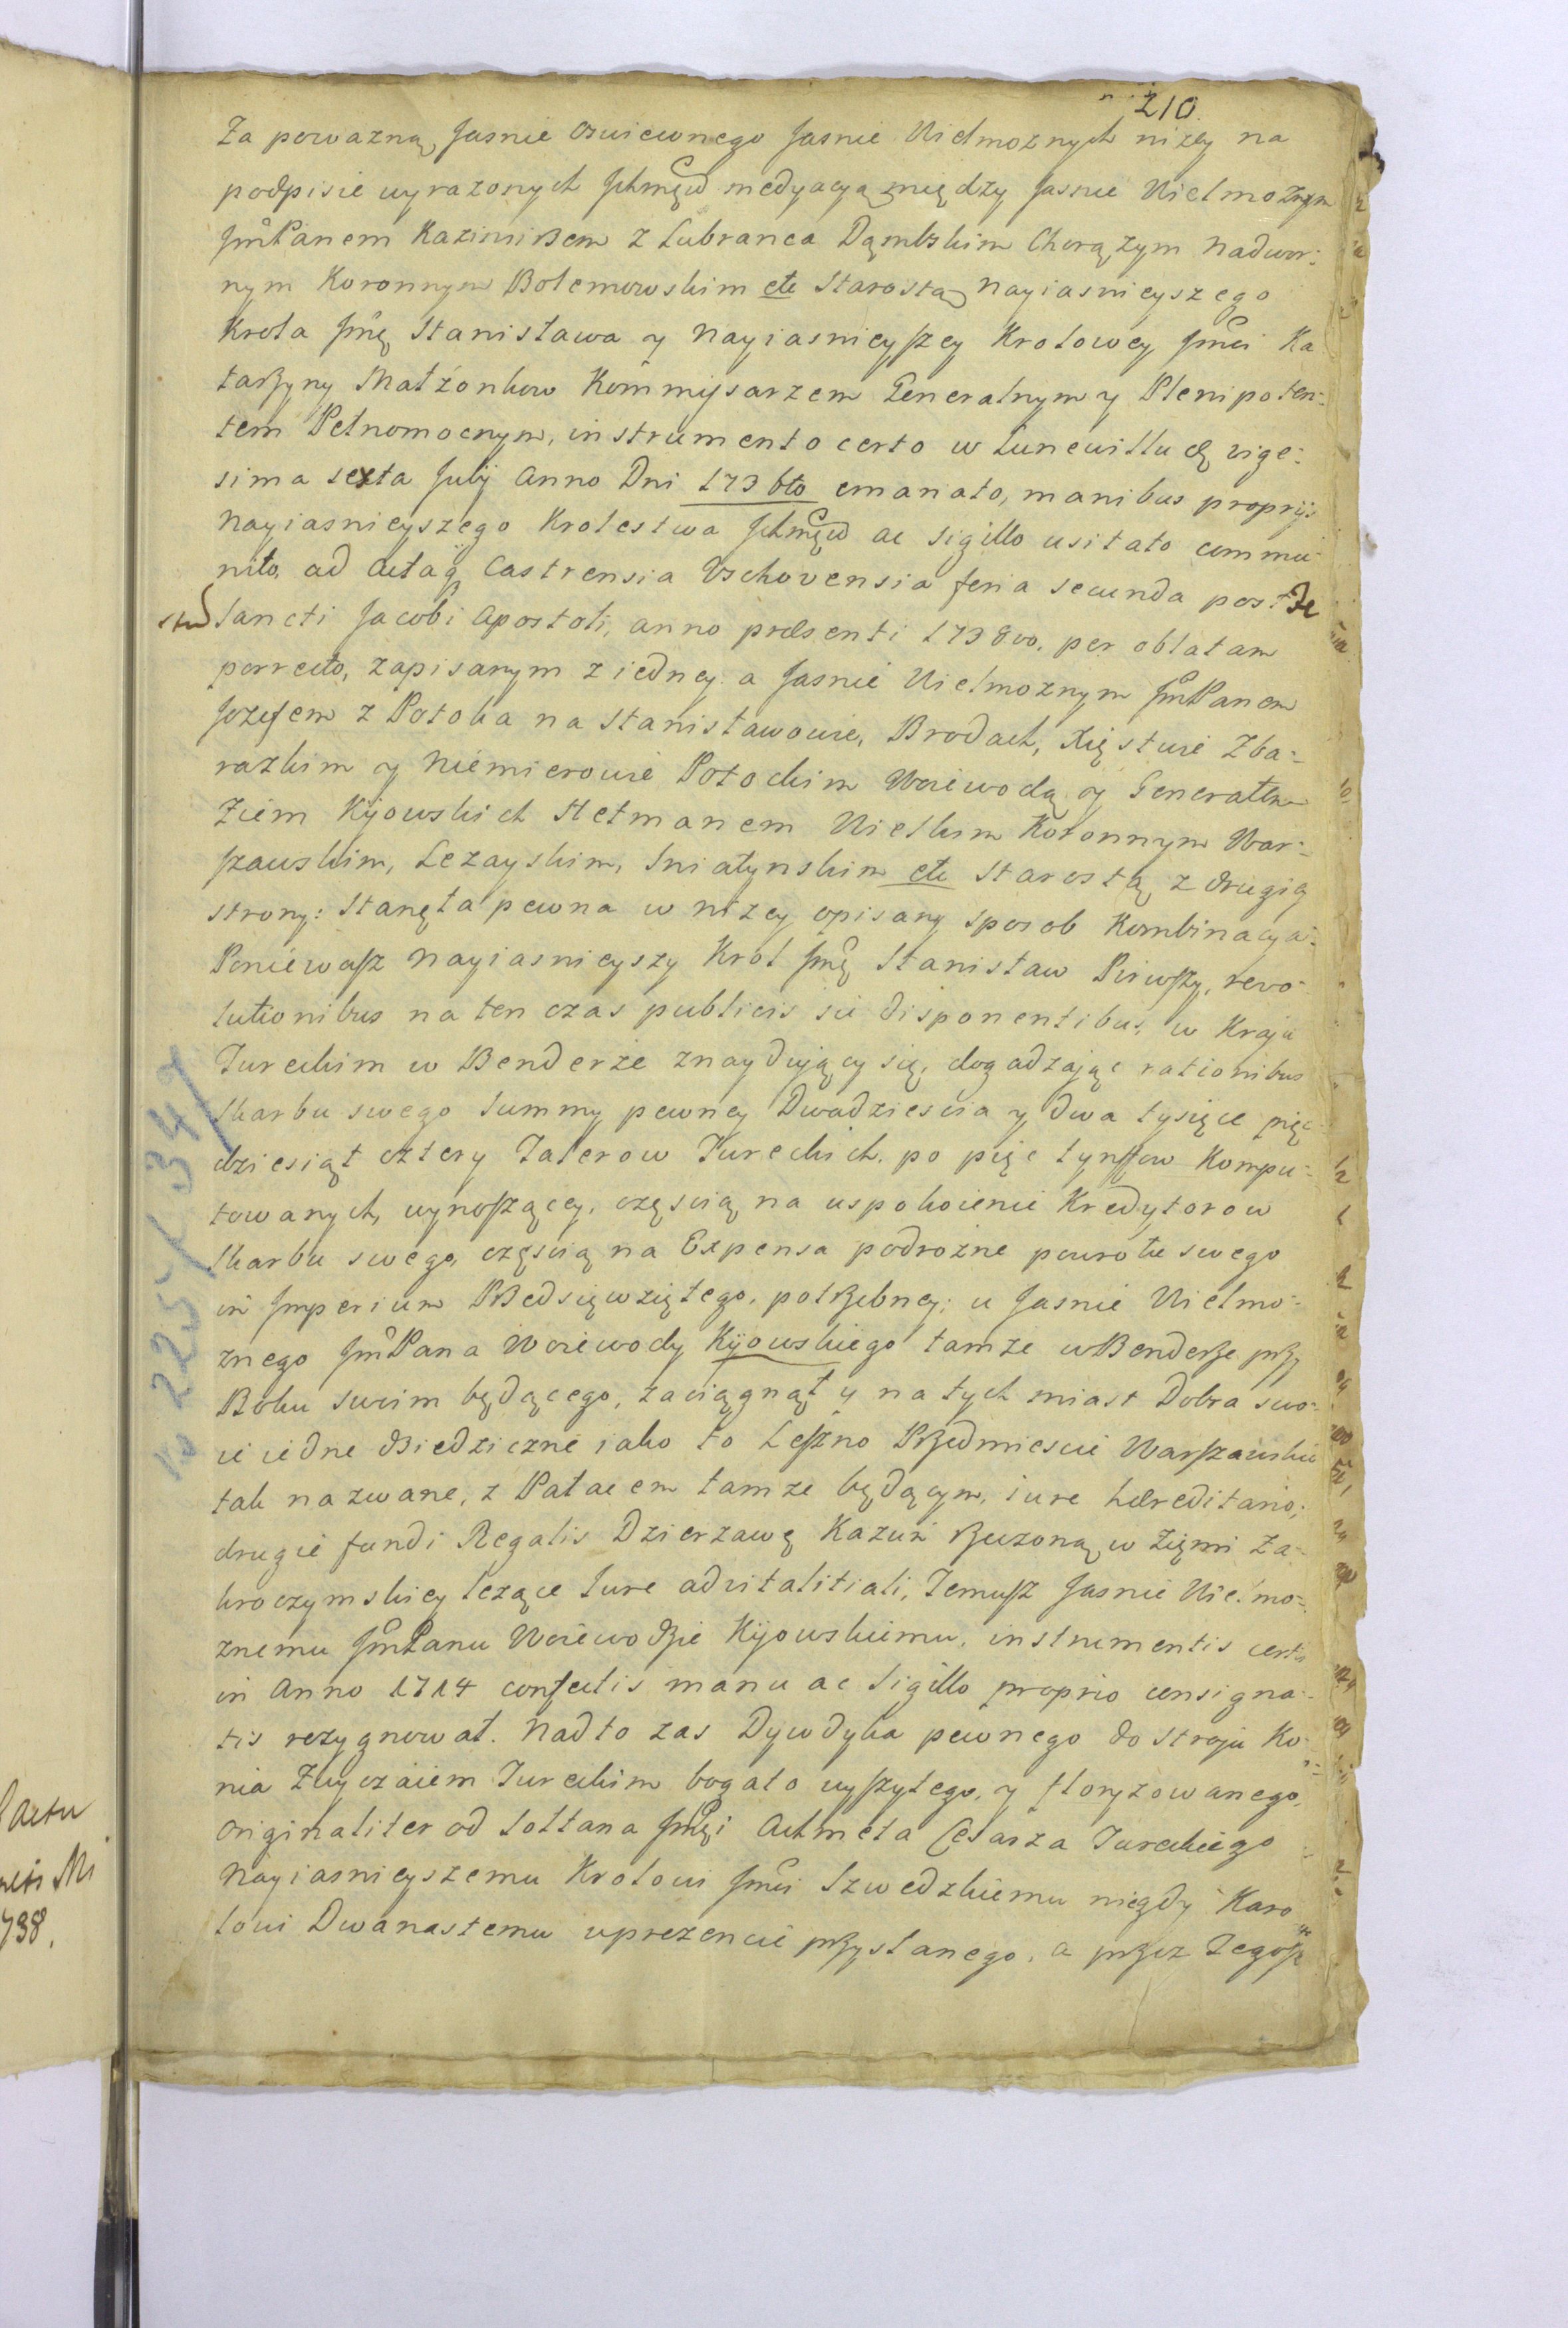 210.
Za poważną Jasnie Oswiewnego Jasnie Wielmoznych nizey na
podpisie wyrazonych Jchmęciow medyacyą między Jasnie Wielmoznym
JmPanem Kazimirzem z Lubranca Dąmbskim Chorązym Nadwor:
nym Koronnym Bolemowskim etc Starostą Nayiasnieyszego
Krola Jmę Stanisława y Nayiasnieyszey Krolowey Jmci Ka
tarzyny Małżonkow Kommissarzem Generalnym y Plenipoten:
tem Pełnomocnym, instrumento certo w Lunewillu dę vige:
sima sexta July Anno Dni 1736to emanato, manibus proprijs
Nayiasnieyszego Krolestwa Jchmęciow ac sigillo usitato commu
nito, ad Acta Castrensia Vschovensia feria secunda post
Sancti Jacobi Apostoli, anno præsenti 1738vo, per oblatam
porrecto, zapisanym z iedney. a Jasnie Wielmoznym JmPanem
Jozefem z Potoka na Stanisławowie, Brodach, Xięstwie Zba:
razkim y Niemierowie Potockim Woiewodą y Generałem
Ziem Kijowskich Hetmanem Wielkim Koronnym War:
szawskim, Lezayskim, Sniatynskim etc Starostą, z drugią
strony: Stanęła pewna w nizey opisany sposob Kombinacya:
Poniewasz Nayiasnieyszy Krol Jmę Stanisław Pirwszy, revo
lutionibus na ten czas publicis sic disponentibus, w Kraju
Tureckim w Benderze znayduiący się, dogadzając rationibus
Skarbu swego Summy pewney Dwadziescia y dwa tysiące pięc
dziesiąt cztery Talerow Tureckich. po pięc tynffow Kompu:
towanych, wynoszącey, częscią na uspokoienie Kredytorow
Skarbu swego, częscią na Expensa podrozne powrotu swego
in Imperium Przedsięwziętego, potrzebney; u Jasnie Wielmo:
znego JmPana Woiewody Kijowskiego tamze w Benderze przy
Boku swoim będącego, zaciągnął y na tych miast Dobra swo:
ie iedne Dziedziczne iako to Leszno Przedmiescie Warszawskie
tak nazwane, z Pałacem tamze będącym, iure hæreditario;
drugie fundi Regalis Dzierzawę Kazuń rzuzoną w Zięmi Za:
kroczymskiey lezące Iure advitalitiali, Temusz Jasnie Wielmo:
znemu JmPanu Woiewodzie Kijowskiemu, instrumentis certis
in Anno 1714 confectis manu ac Sigillo proprio consigna:
tis rezygnował. Nadto zas Dywdyka pewnego do stroju Ko
nia Zwyczaiem Tureckim bogato wyszytego, y floryzowanego,
Originaliter od Sołtana Jmęi Achmeta Cesarza Tureckiego
Nayiasnieyszemu Krolowi Jmci Szwedzkiemu niegdy Karo
lowi Dwanastemu w prezencie przysłanego, a przez Tegosz
N 225/349